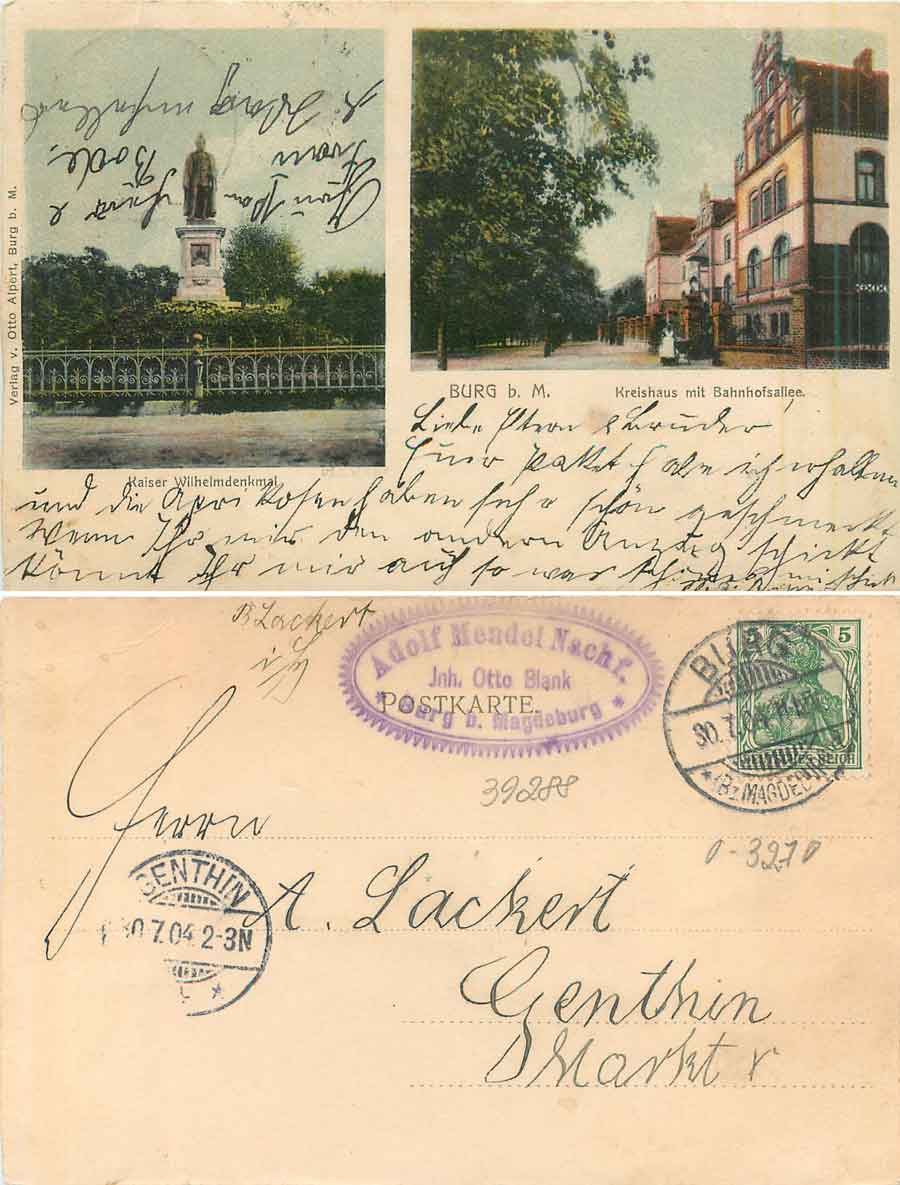 Verlag v. Otto Alpert, Burg b. M.
Kaiser Wilhelmdenkmal
BURG b. M. Kreishaus mit Bahnhofsallee.
Liebe Eltern & Bruder!
Euer Paket habe ich erhalten
und die Aprikosen haben sehr schön geschmeckt
Wenn Ihr mir den andern Anzug schickt
könnt Ihr mir auch so was
Bode
Lackert
Adolf Mendel Nachf.
Jnh. Otto Blank
POSTKARTE.
* Burg b. Magdeburg *
BURG
30.7.04
* (Bz. MAGDEBURG)
5 5
39288
0-3270
Herrn
GENTHIN
7.04 2-3N
A. Lackert
Genthin
Markt